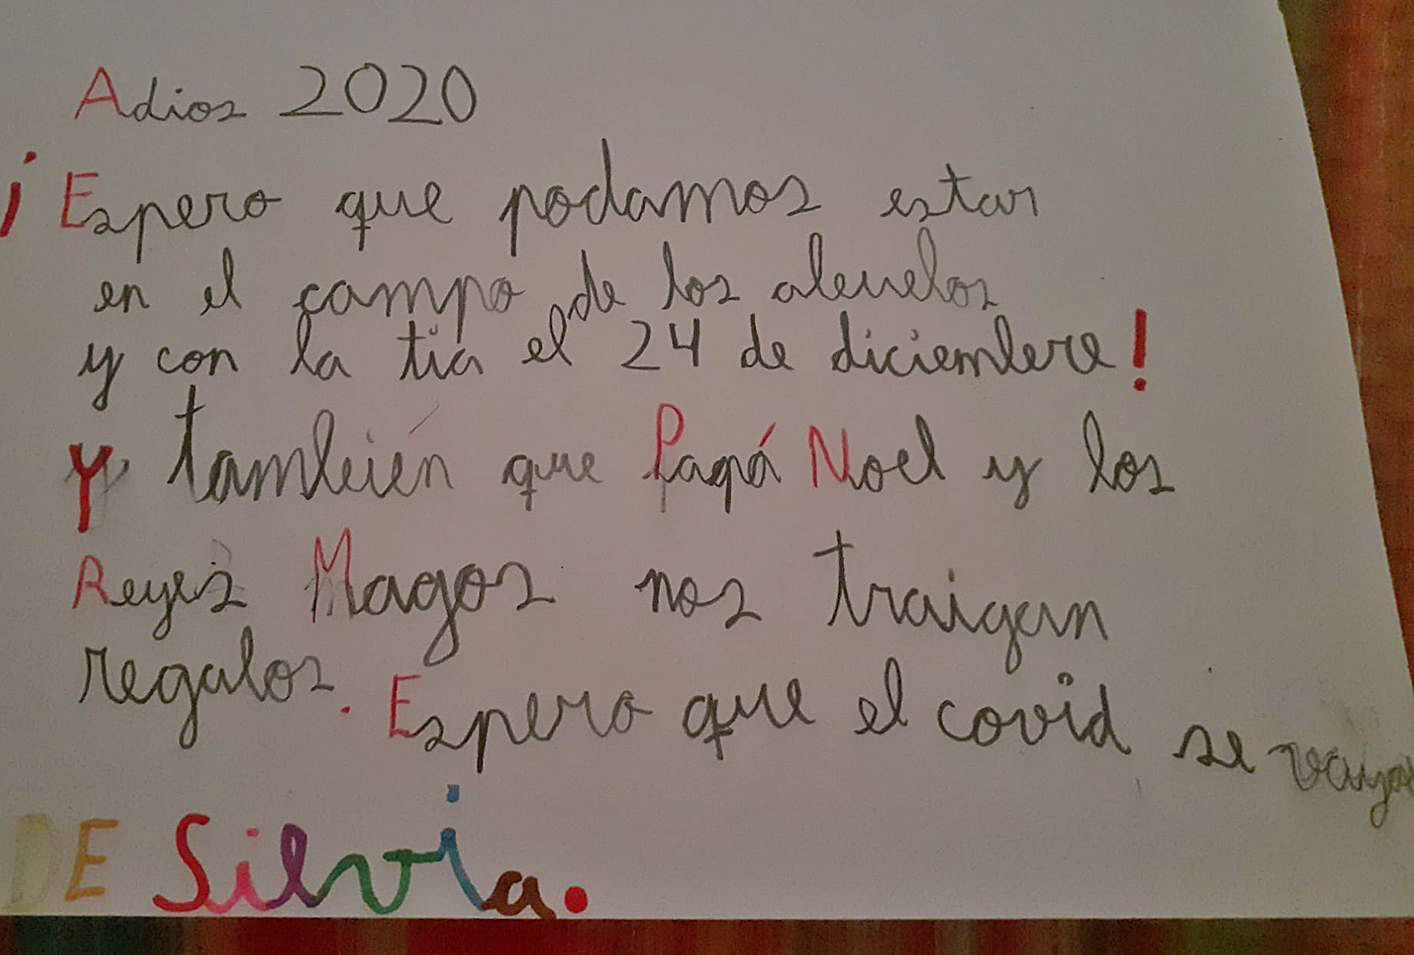 Adios 2020
¡Espero que podamos estar
en el campo de los abuelos
y con la tia el 24 de diciembre!
Y también que Papá Noel y los
Reyes Magos nos traigan
regalos. Espero que el covid se vaya
DE Silvia.